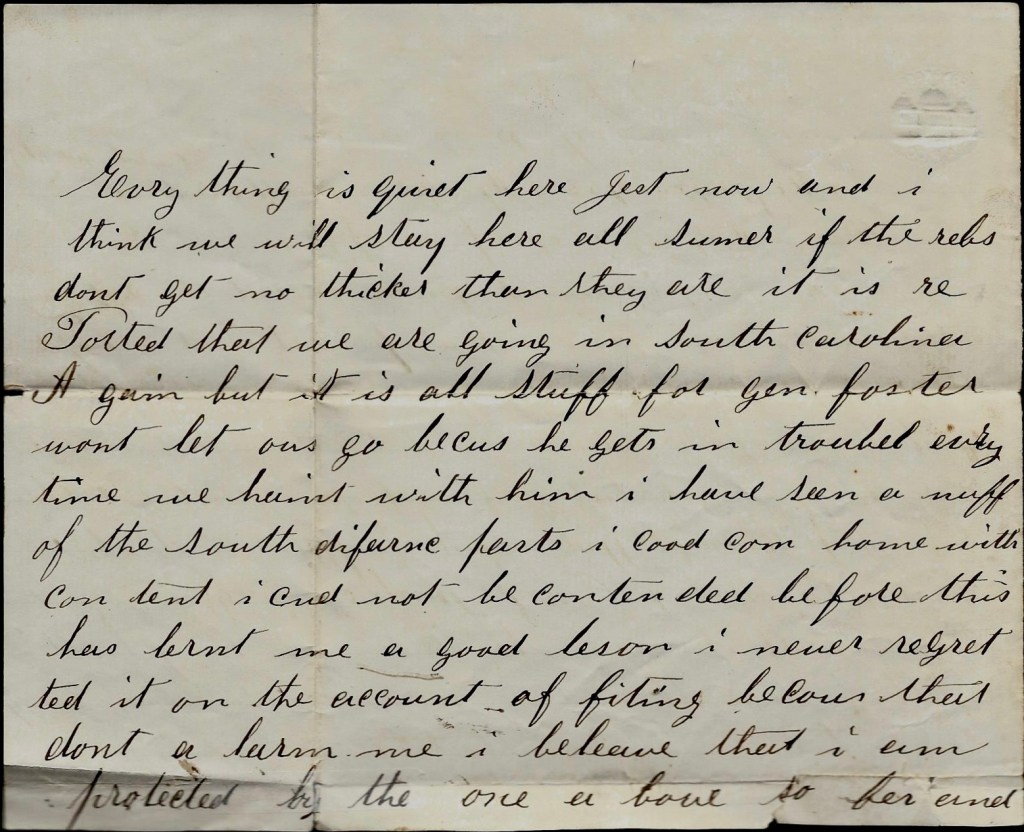 Evry thing is quiet here Jest now and i
think we will stay here all sumer if the rebs
dont get no thicker than they are it is re
Ported that we are going in south carolina
A gain but it is all stuff for gen. foster
wont let ous go becus he gets in troubel evry
time we haint with him i have seen a nuff
of the south difarnc parts i cood com home with
con tent i cud not be conten ded be fore this
has lernt me a good leson i never regret
ted it on the account of fiting becous that
dont a larm me i beleave that i am
protected by the one a bove so fer and